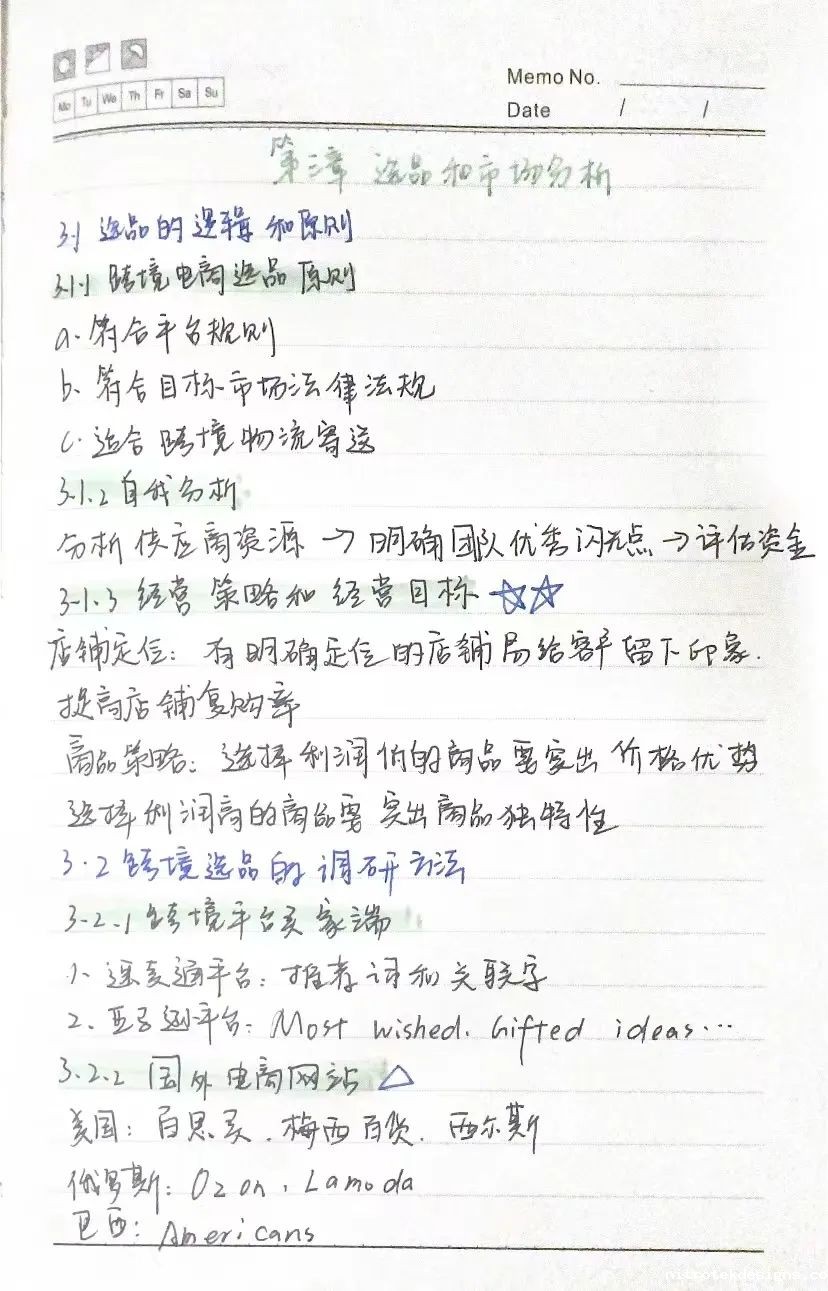 Memo No.
Mo Tu We Th Fr Sa Su
Date / /
第三章 选品和市场分析
3.1 选品的逻辑和原则
3.1.1 跨境电商选品原则
a. 符合平台规则
b. 符合目标市场法律法规
c. 适合跨境物流寄送
3.1.2 自我分析
分析供应商资源 → 明确团队优秀闪光点 → 评估资金
3.1.3 经营策略和经营目标 ☆☆
店铺定位: 有明确定位的店铺易给客户留下印象.
提高店铺复购率
商品策略: 选择利润低的商品要突出价格优势
选择利润高的商品要突出商品独特性
3.2 跨境选品的调研方法
3.2.1 跨境平台买家端
1. 速卖通平台: 推荐词和关联字
2. 亚马逊平台: Most wished. Gifted ideas...
3.2.2 国外电商网站 △
美国: 百思买. 梅西百货. 西尔斯
俄罗斯: Ozon, Lamoda
巴西: Americans